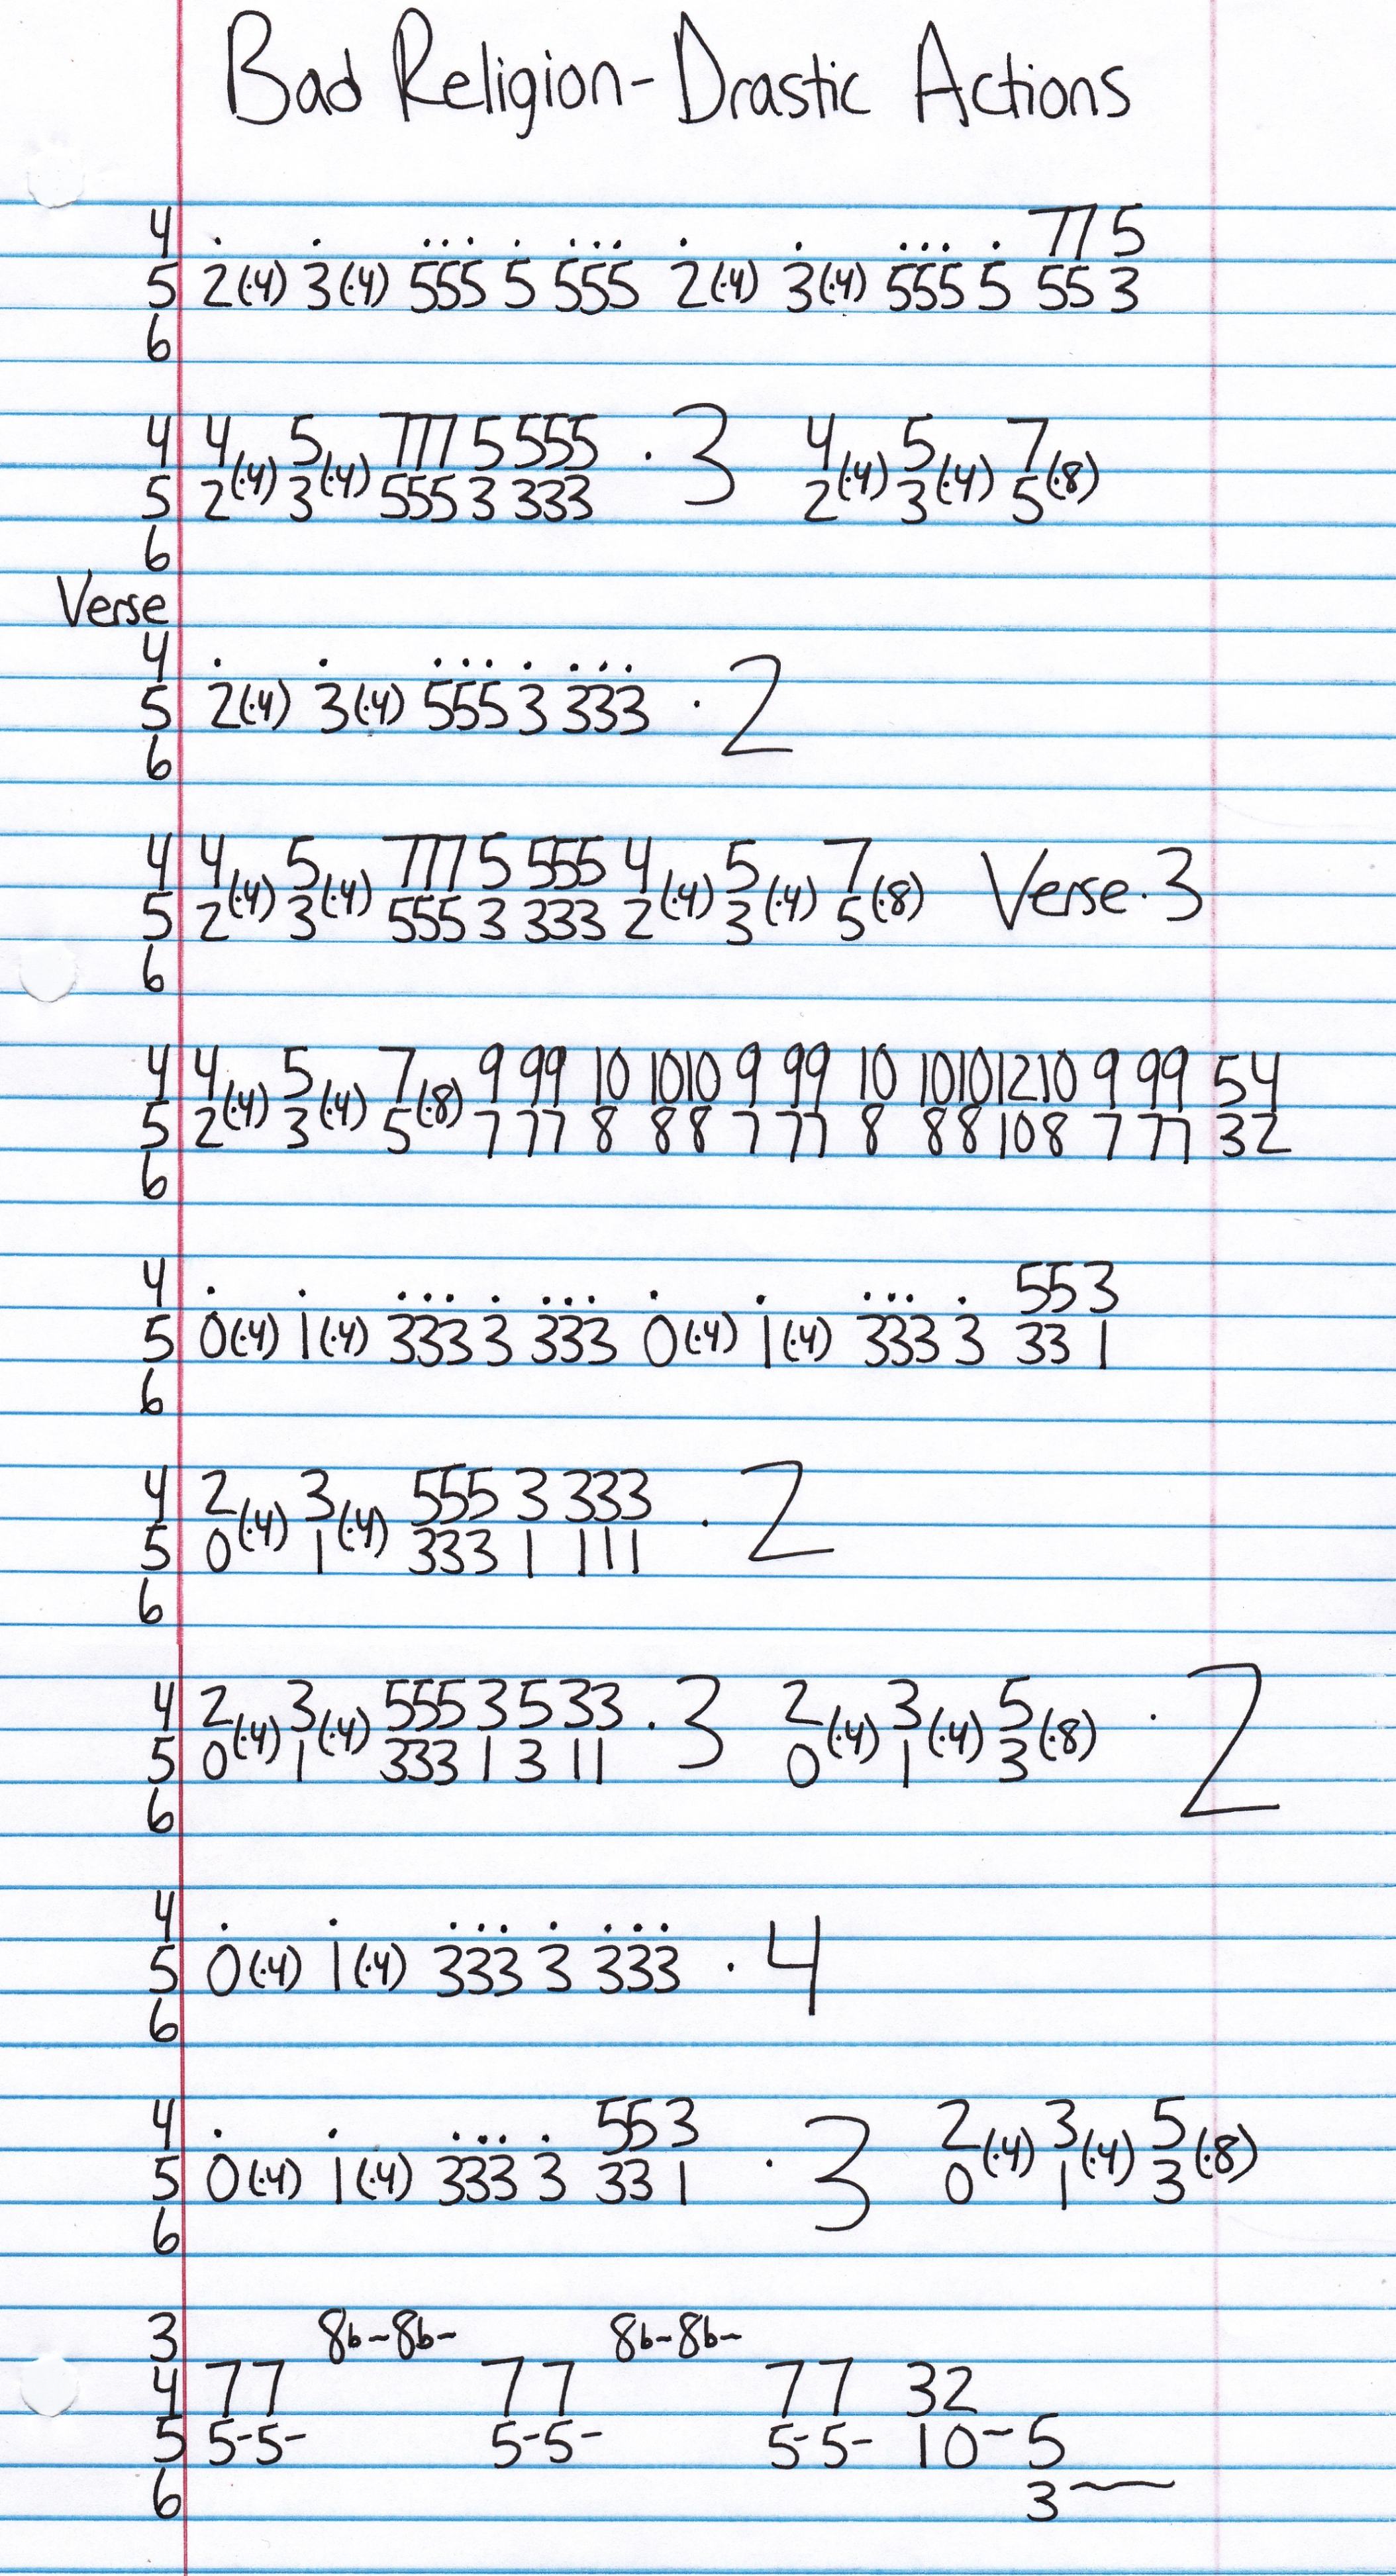 Bad Religion - Drastic Actions
4 . . ... . ... . . ... . 77 5
5 2(·4) 3(·4) 555 5 555 2(·4) 3(·4) 555 5 55 3
6
4 4(·4) 5(·4) 777 5 555 · 3 4(·4) 5(·4) 7(·8)
5 2 3 555 3 333 2 3 5
6
Verse
4 . . ... . ...
5 2(·4) 3(·4) 555 3 333 · 2
6
4 4(·4) 5(·4) 777 5 555 4(·4) 5(·4) 7(·8) Verse · 3
5 2 3 555 3 333 2 3 5
6
4 4(·4) 5(·4) 7(·8) 9 99 10 1010 9 99 10 10101210 9 99 54
5 2 3 5 7 77 8 88 7 77 8 88108 7 77 32
6
4 . . ... . ... . . ... . 553
5 0(·4) 1(·4) 333 3 333 0(·4) 1(·4) 333 3 33 1
6
4 2(·4) 3(·4) 555 3 333 · 2
5 0 1 333 1 111
6
4 2(·4) 3(·4) 555 3 5 33 · 3 2(·4) 3(·4) 5(·8) · 2
5 0 1 333 1 3 11 0 1 3
6
4 . . ... . ...
5 0(·4) 1(·4) 333 3 333 · 4
6
4 . . ... . 553 2(·4) 3(·4) 5(·8)
5 0(·4) 1(·4) 333 3 33 1 · 3 0 1 3
6
3 8b~8b~ 8b~8b~
4 77 77 77 32
5 5-5- 5-5- 5-5- 10~5
6 3~